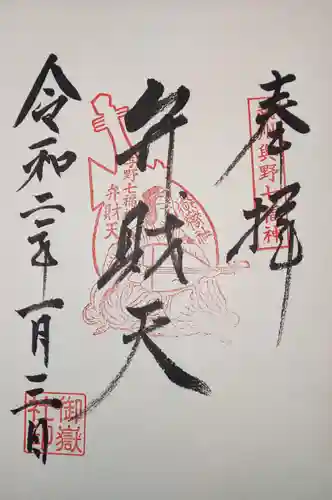 奉拝
與野七福神
弁財天
與野七福神
弁財天
令和二年一月三日
御嶽社印